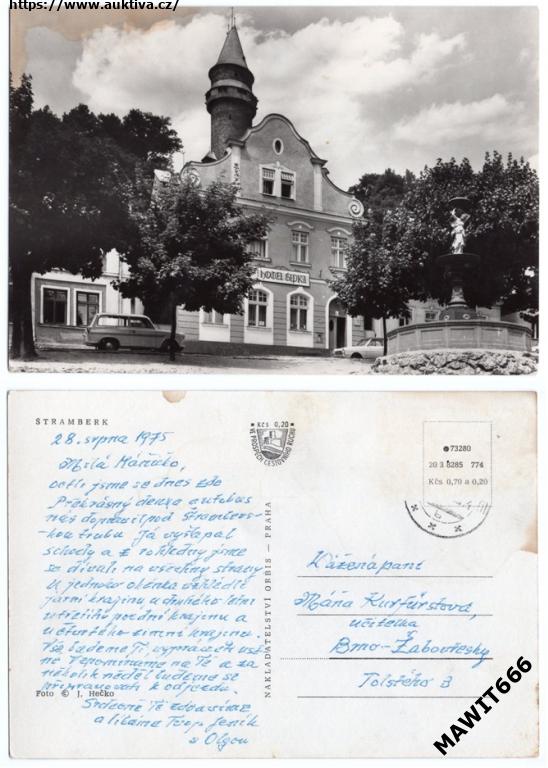 https://www.auktiva.cz/
HOTEL ŠIPKA
ŠTRAMBERK
28. srpna 1975
Milá Máňičko,
octli jsme se dnes zde
Překrásný autobus
nás dopravil pod Štrambers-
kou trubu Já vyšlapal
schody a z rozhledny jsme
se dívali na všechny strany
U jednoho okénka vzhledli
jarní krajinu u druhého letní
u třetího podzimní krajinu a
u čtvrtého zimní krajinu.
Vše budeme Ti vypravovat
Vzpomínáme na Tě a za
několik neděl budeme se
připravovati k odjezdu.
Srdečně Tě zdraví
a líbáme Tvoji Jeník
s Olgou
Foto © J. Hečko
NAKLADATELSTVÍ ORBIS — PRAHA
Kčs 0,20
VE PROSPĚCH CESTOVNÍHO RUCHU
73280
20 3 8285 774
Kčs 0,70 a 0,20
Vážená paní
Máňa Kurfürstová,
učitelka
Brno-Žabovřesky
Tolstého 3
MAWIT666